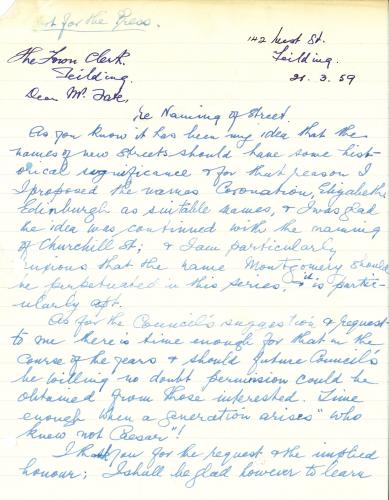 Not for the Press.
142 West St.
Feilding.
21.3.59
The Town Clerk.
Feilding.
Dear Mr
re Naming of Street.
As you know it has been my idea that the
names of new streets should have some hist-
orical significance & for that reason I
proposed the names Coronation, Elizabeth
Edinburgh as suitable names, & I was glad
the idea was continued with the naming
of Churchill St; & I am particularly
anxious that the name Montgomery should
be perpetuated in this series; it is partic-
ularly apt.
As for the Council's suggestion & request
to me there is time enough for that in the
course of the years & should future Council's
be willing no doubt permission could be
obtained from those interested. Time
enough when a generation arises "who
knew not Caesar"!
I thank you for the request & the implied
honour; I shall be glad however to learn